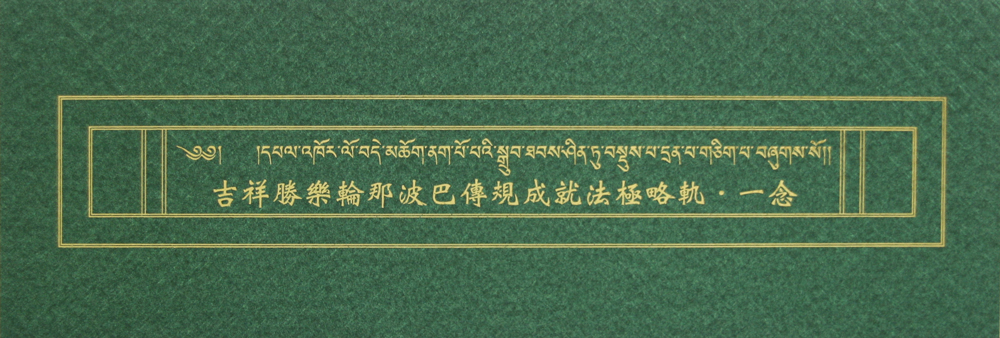 ༄༅། །དཔལ་འཁོར་ལོ་བདེ་མཆོག་ནག་པོ་པའི་སྒྲུབ་ཐབས་ཤིན་ཏུ་བསྡུས་པ་དྲན་པ་གཅིག་པ་བཞུགས་སོ།།
吉祥勝樂輪那波巴傳規成就法極略軌·一念